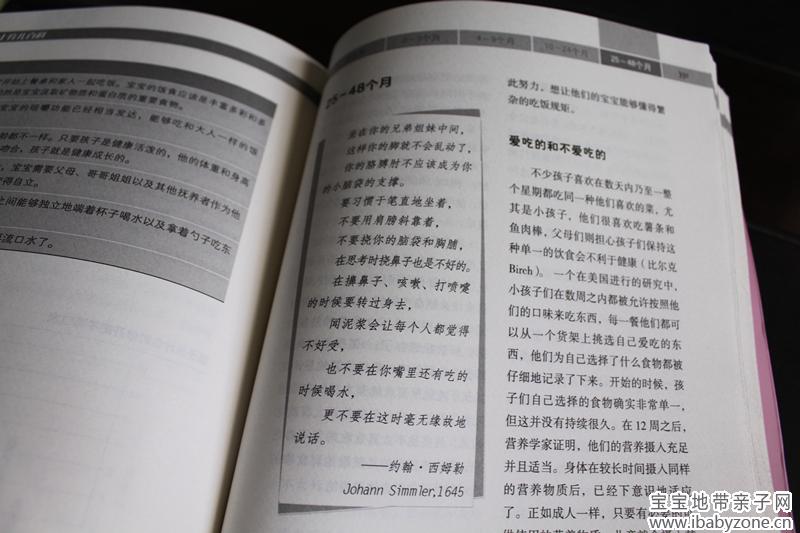 育儿百科
开始上餐桌和家人一起吃饭。宝宝的饭食应该是丰富多彩和多
然是宝宝汲取矿物质和蛋白质的重要食物。
宝宝的咀嚼功能已经相当发达，能够吃和大人一样的饭
都不一样。只要孩子是健康活泼的，他的体重和身高
吻合，孩子就是健康成长的。
，宝宝需要父母、哥哥姐姐以及其他抚养者作为他
得自立。
之间能够独立地端着杯子喝水以及拿着勺子吃东
流口水了。
4－9个月
10－24个月
25－48个月
25－48个月
坐在你的兄弟姐妹中间，
这样你的脚就不会乱动了，
你的胳膊肘不应该成为你
的小脑袋的支撑。
要习惯于笔直地坐着，
不要用肩膀斜靠着，
不要挠你的脑袋和胸脯，
在思考时挠鼻子也是不好的。
在擤鼻子、咳嗽、打喷嚏
的时候要转过身去，
闻泥浆会让每个人都觉得
不好受，
也不要在你嘴里还有吃的
时候喝水，
更不要在这时毫无缘故地
说话。
——约翰·西姆勒
Johann Simmler,1645
此努力，想让他们的宝宝能够懂得繁
杂的吃饭规矩。
爱吃的和不爱吃的
不少孩子喜欢在数天内乃至一整
个星期都吃同一种他们喜欢的菜，尤
其是小孩子，他们很喜欢吃薯条和
鱼肉棒，父母们则担心孩子们保持这
种单一的饮食会不利于健康（比尔克
Birch）。一个在美国进行的研究中，
小孩子们在数周之内都被允许按照他
们的口味来吃东西，每一餐他们都可
以从一个货架上挑选自己爱吃的东
西，他们为自己选择了什么食物都被
仔细地记录了下来。开始的时候，孩
子们自己选择的食物确实非常单一，
但这并没有持续很久。在 12 周之后，
营养学家证明，他们的营养摄入充足
并且适当。身体在较长时间摄入同样
的营养物质后，已经下意识地适应
了。正如成人一样，只要有必要的
宝宝地带亲子网
www.ibabyzone.cn